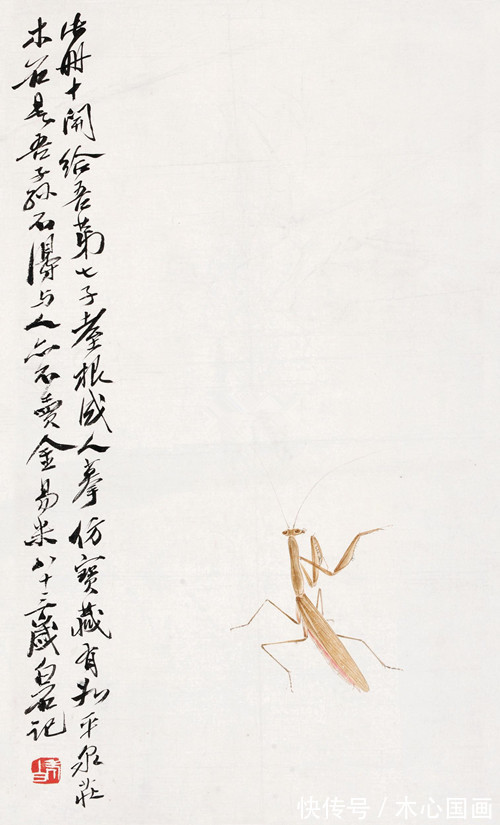 此册十開給吾第七子耋根成人摹仿寶藏有如平泉莊
木石是吾子孫不得与人亦不賣金易米八十三歲白石記
快传号 / 木心国画